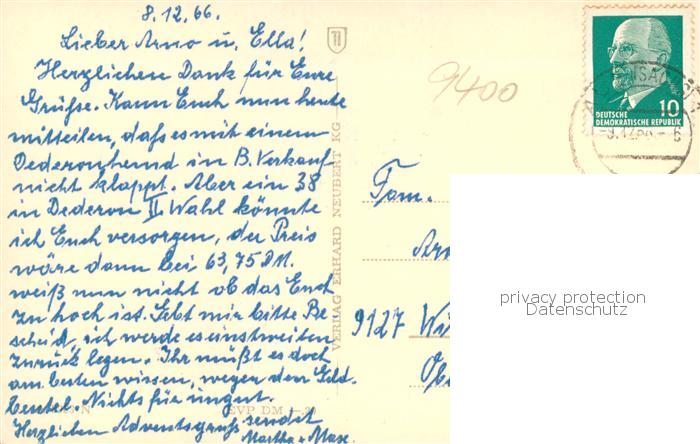 8.12.66.
Lieber Arno u. Ella!
Herzlichen Dank für Eure
Grüße. Kann Euch nun heute
mitteilen, daß es mit einem
Dederonhemd in B. Verkauf
nicht klappt. Aber ein 38
in Dederon II. Wahl könnte
ich Euch versorgen, der Preis
wäre dann bei 63,75 DM.
weiß nun nicht ob das Euch
zu hoch ist. Gebt mir bitte Be-
scheid, ich werde es einstweilen
zurück legen. Ihr müßt es doch
am besten wissen, wegen dem Geld-
beutel. Nichts für ungut.
Herzlichen Adventsgruß sendet
Martha + Max.
EVP DM –.20
VERLAG ERHARD NEUBERT KG
9400
10
DEUTSCHE
DEMOKRATISCHE REPUBLIK
Fam.
9127
privacy protection
Datenschutz